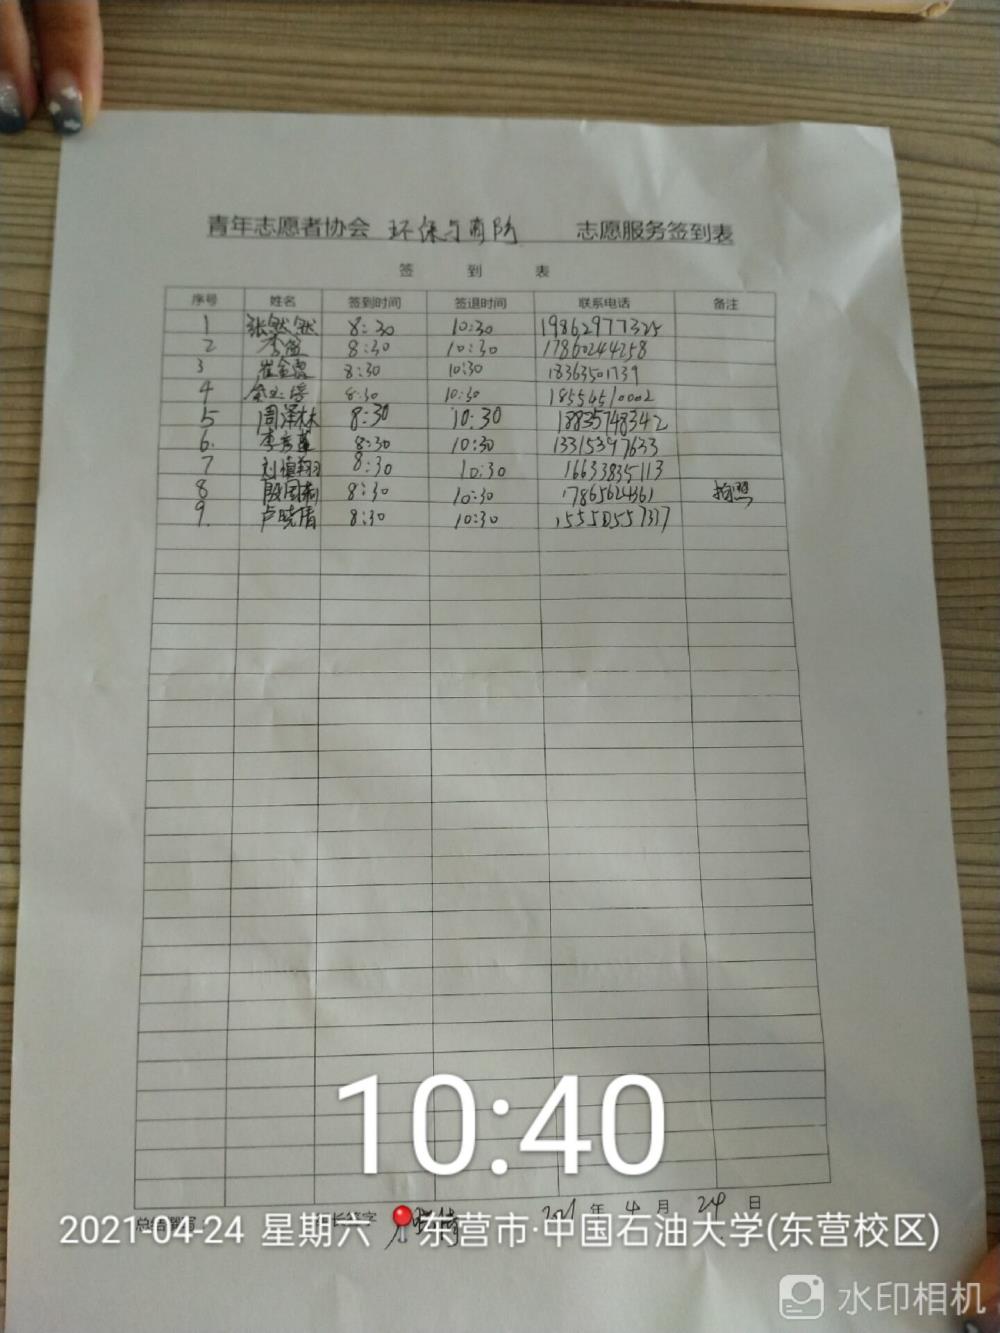 青年志愿者协会 环保与消防 志愿服务签到表
签 到 表
序号 姓名 签到时间 签退时间 联系电话 备注
1 张然然 8:30 10:30 19862977325
2 李 8:30 10:30 17860244258
3 崔金 8:30 10:30 18363501739
4 8:30 10:30 18554510002
5 周泽林 8:30 10:30 18835748342
6. 李彦莲 8:30 10:30 13315397633
7 刘慎翔 8:30 10:30 16633835113
8 殷国 8:30 10:30 17865624361 拍照
9. 卢晓倩 8:30 10:30 15550557337
10:40
总结撰写 长签字 晓倩 2021 年 4 月 24 日
2021-04-24 星期六 东营市·中国石油大学(东营校区)
水印相机